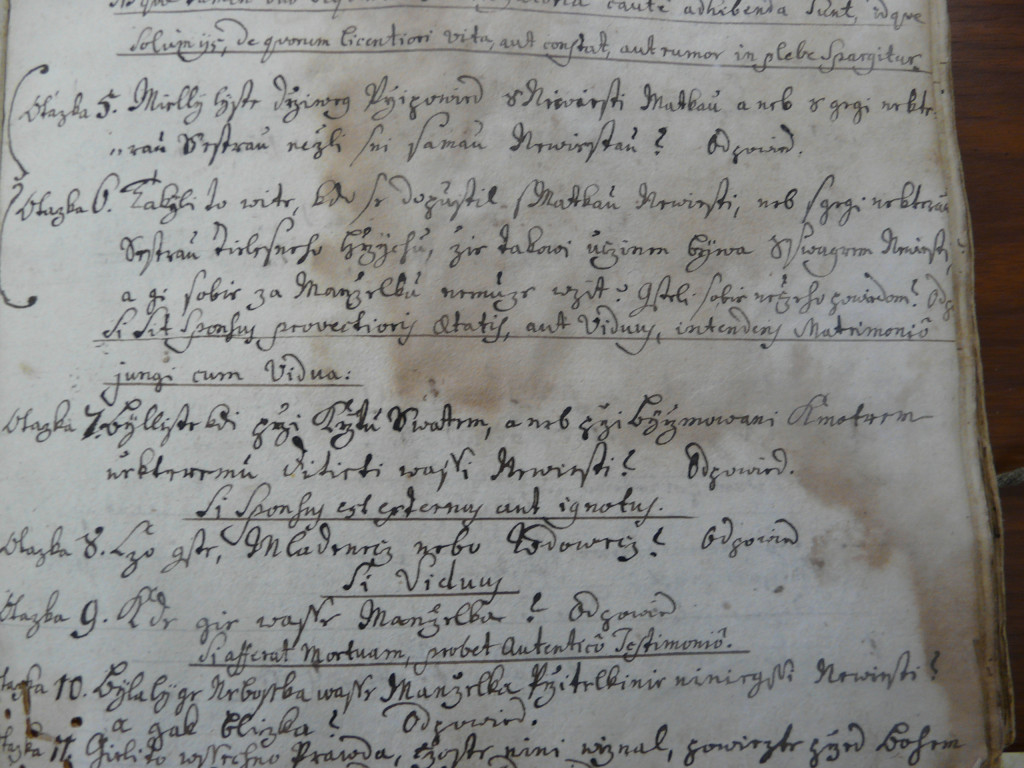 caute adhibenda Sunt, idque
Solum ijs, de quorum licentiori vita, aut constat, aut rumor in plebe Spargitur.
Otázka 5. Mielly lyste držiweg Pržipowied s Newiesti Matkau a neb s gegi nekte-
rau Sestrau nežli sni samau Newiestau? Odpowied.
Otazka 6. Takžli to wite, kdo se dopustil s Matkau Newiesti, neb s gegi nekterau
Sestrau tielesneho Hržychu, žie takowi učzinem bywa Sswagrem Newiesti,
a gi sobie za Manželku nemuze wzit? Gsteli sobie niczeho powiedom? Odp
Si Sit Sponsus provectioris Ætatis, aut Viduus, intendens Matrimoniô
jungi cum Vidua:
Otazka 7. Bylliste kdi pržy Krztu Swatem, a neb prži Byrzmowani Kmotrem
niekteremu Ditieti wassi Newiesti? Odpowied.
Si Sponsus est externus aut ignotus.
Otazka 8. Czo gste, Mladenecz nebo Wdowecz? Odpowied
Si Viduus
Otazka 9. Kde gie wasse Manželka? Odpowied
Si afferat Mortuam, probet Autenticô Testimoniô.
Otazka 10. Byla ly ge Neboztka wasse Manzelka Pržitelkinie niniegssi Newiesti?
a gak bliczka? Odpowied.
Otazka 11. Gieli to wssechno Prawda, czoste nini wiznal, powiezte pržed Bohem